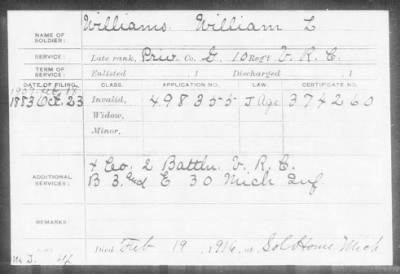 NAME OF SOLDIER: Williams, William L
SERVICE: Late rank, Priv. Co. G, 10 Regt V. R. C.
TERM OF SERVICE: Enlisted , 1 Discharged , 1
DATE OF FILING. CLASS. APPLICATION NO. LAW. CERTIFICATE NO.
1883 Oct. 23 Invalid, 498355 J Age 374260
Widow,
Minor,
4 Co. 2 Battln. V. R. C.
ADDITIONAL SERVICES: B 3, and E 30 Mich Inf.
REMARKS:
Died Feb 19, 1916, at Sol Home Mich